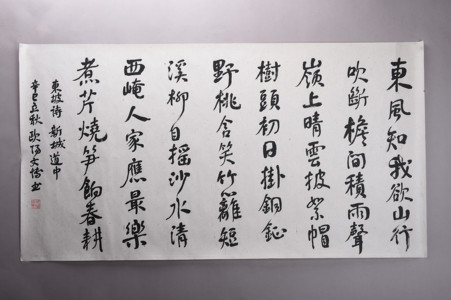 東風知我欲山行
吹斷檐間積雨聲
嶺上晴雲披絮帽
樹頭初日掛銅鉦
野桃含笑竹籬短
溪柳自搖沙水清
西崦人家應最樂
煮芹燒筍餉春耕
東坡诗 新城道中
辛巳立秋 欧阳文 书